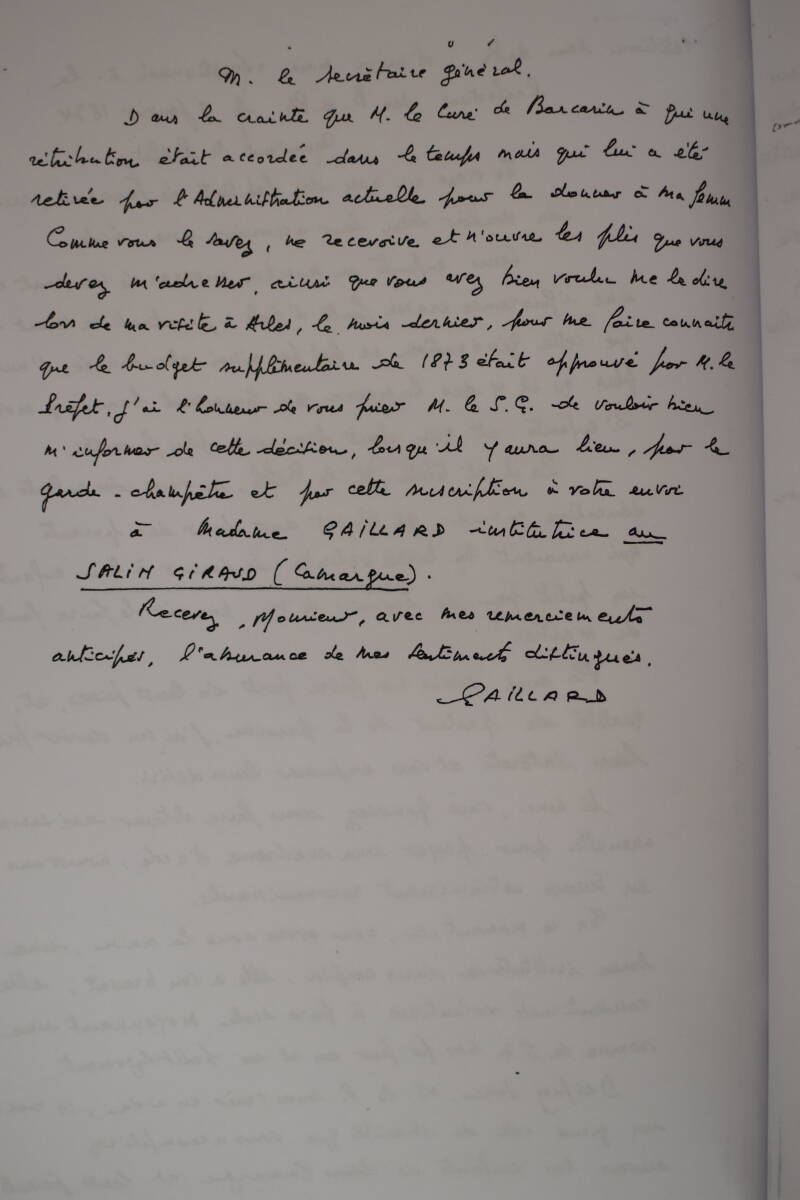 M. le secrètaire général.
Dans la crainte que M. le Curé de Barcarin à qui une
rétribution était accordée dans le temps mais qui lui a été
retirée par l'Administration actuelle pour la donner à ma femm
Comme vous le savez, ne recevoive et n'ouvre les plis que vous
devez m'adresser, ainsi que vous avez bien voulu me le dire
lors de ma visite à Arles, le mois dernier, pour me faire connaitre
que le budget supplémentaire de 1873 était approuvé par M. le
Préfet, j'ai l'honneur de vous prier M. le S.G. de vouloir bien
m'informer de cette décision, lorsqu'il y aura lieu, par le
garde-champêtre et par cette suscription à votre envoi
à Madame GAILLARD institutrice au
SALIN GIRAUD (Camargue).
Recevez, Monsieur, avec mes remerciements
anticipés, l'assurance de mes sentiments distingués.
GAILLARD